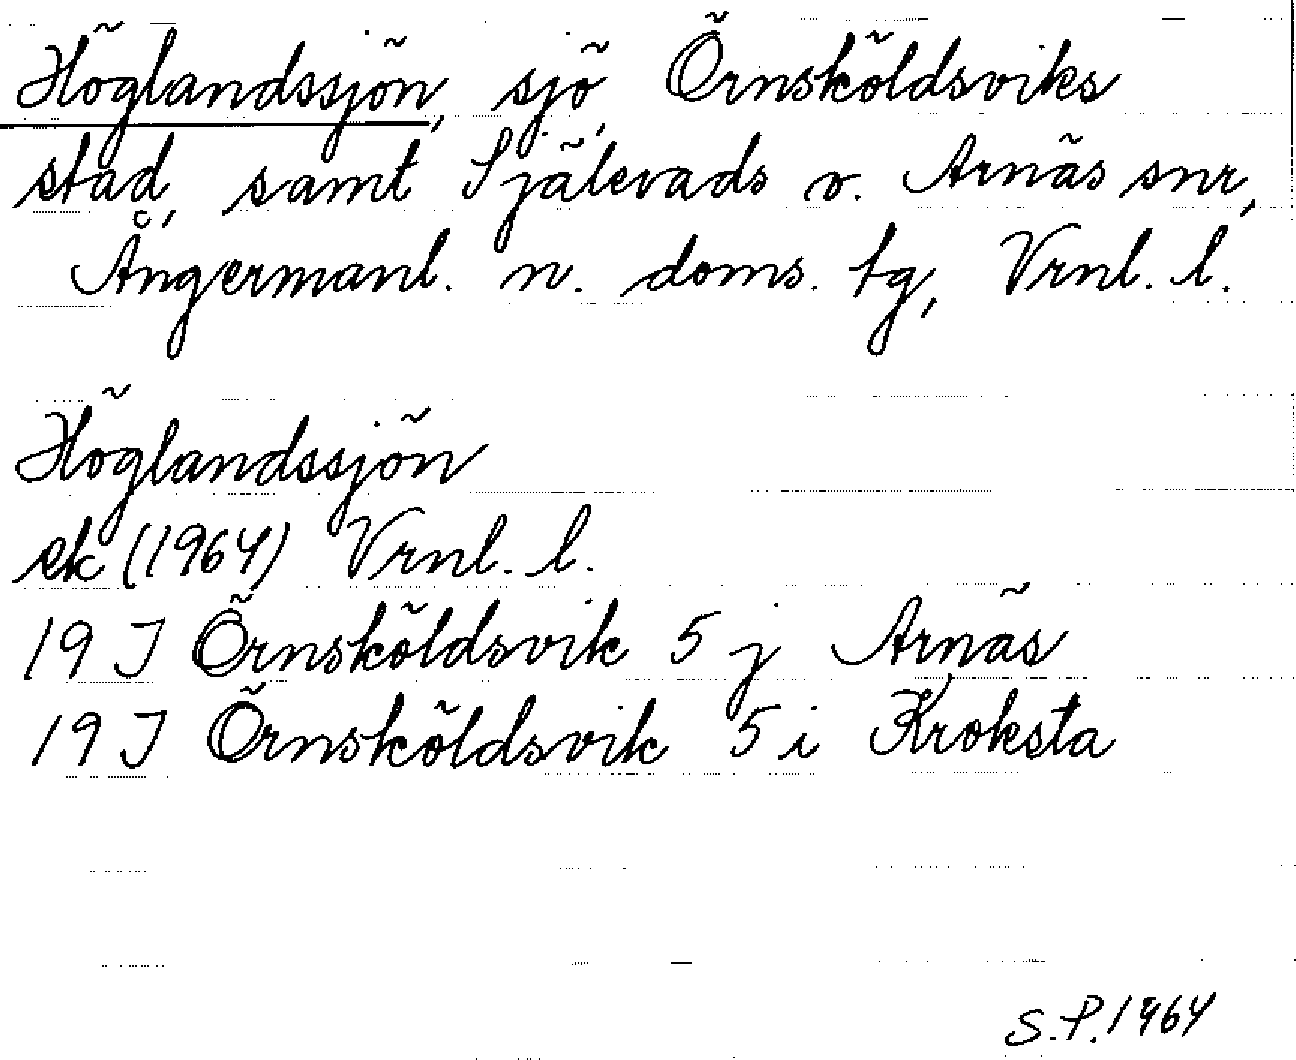 Höglandssjön, sjö, Örnsköldsviks
stad, samt Själevads o. Arnäs snr,
Ångermanl. n. doms. tg, Vrnl. l.
Höglandssjön
ek (1964) Vrnl. l.
19 J Örnsköldsvik 5 j Arnäs
19 J Örnsköldsvik 5 i Kroksta
S.P. 1964